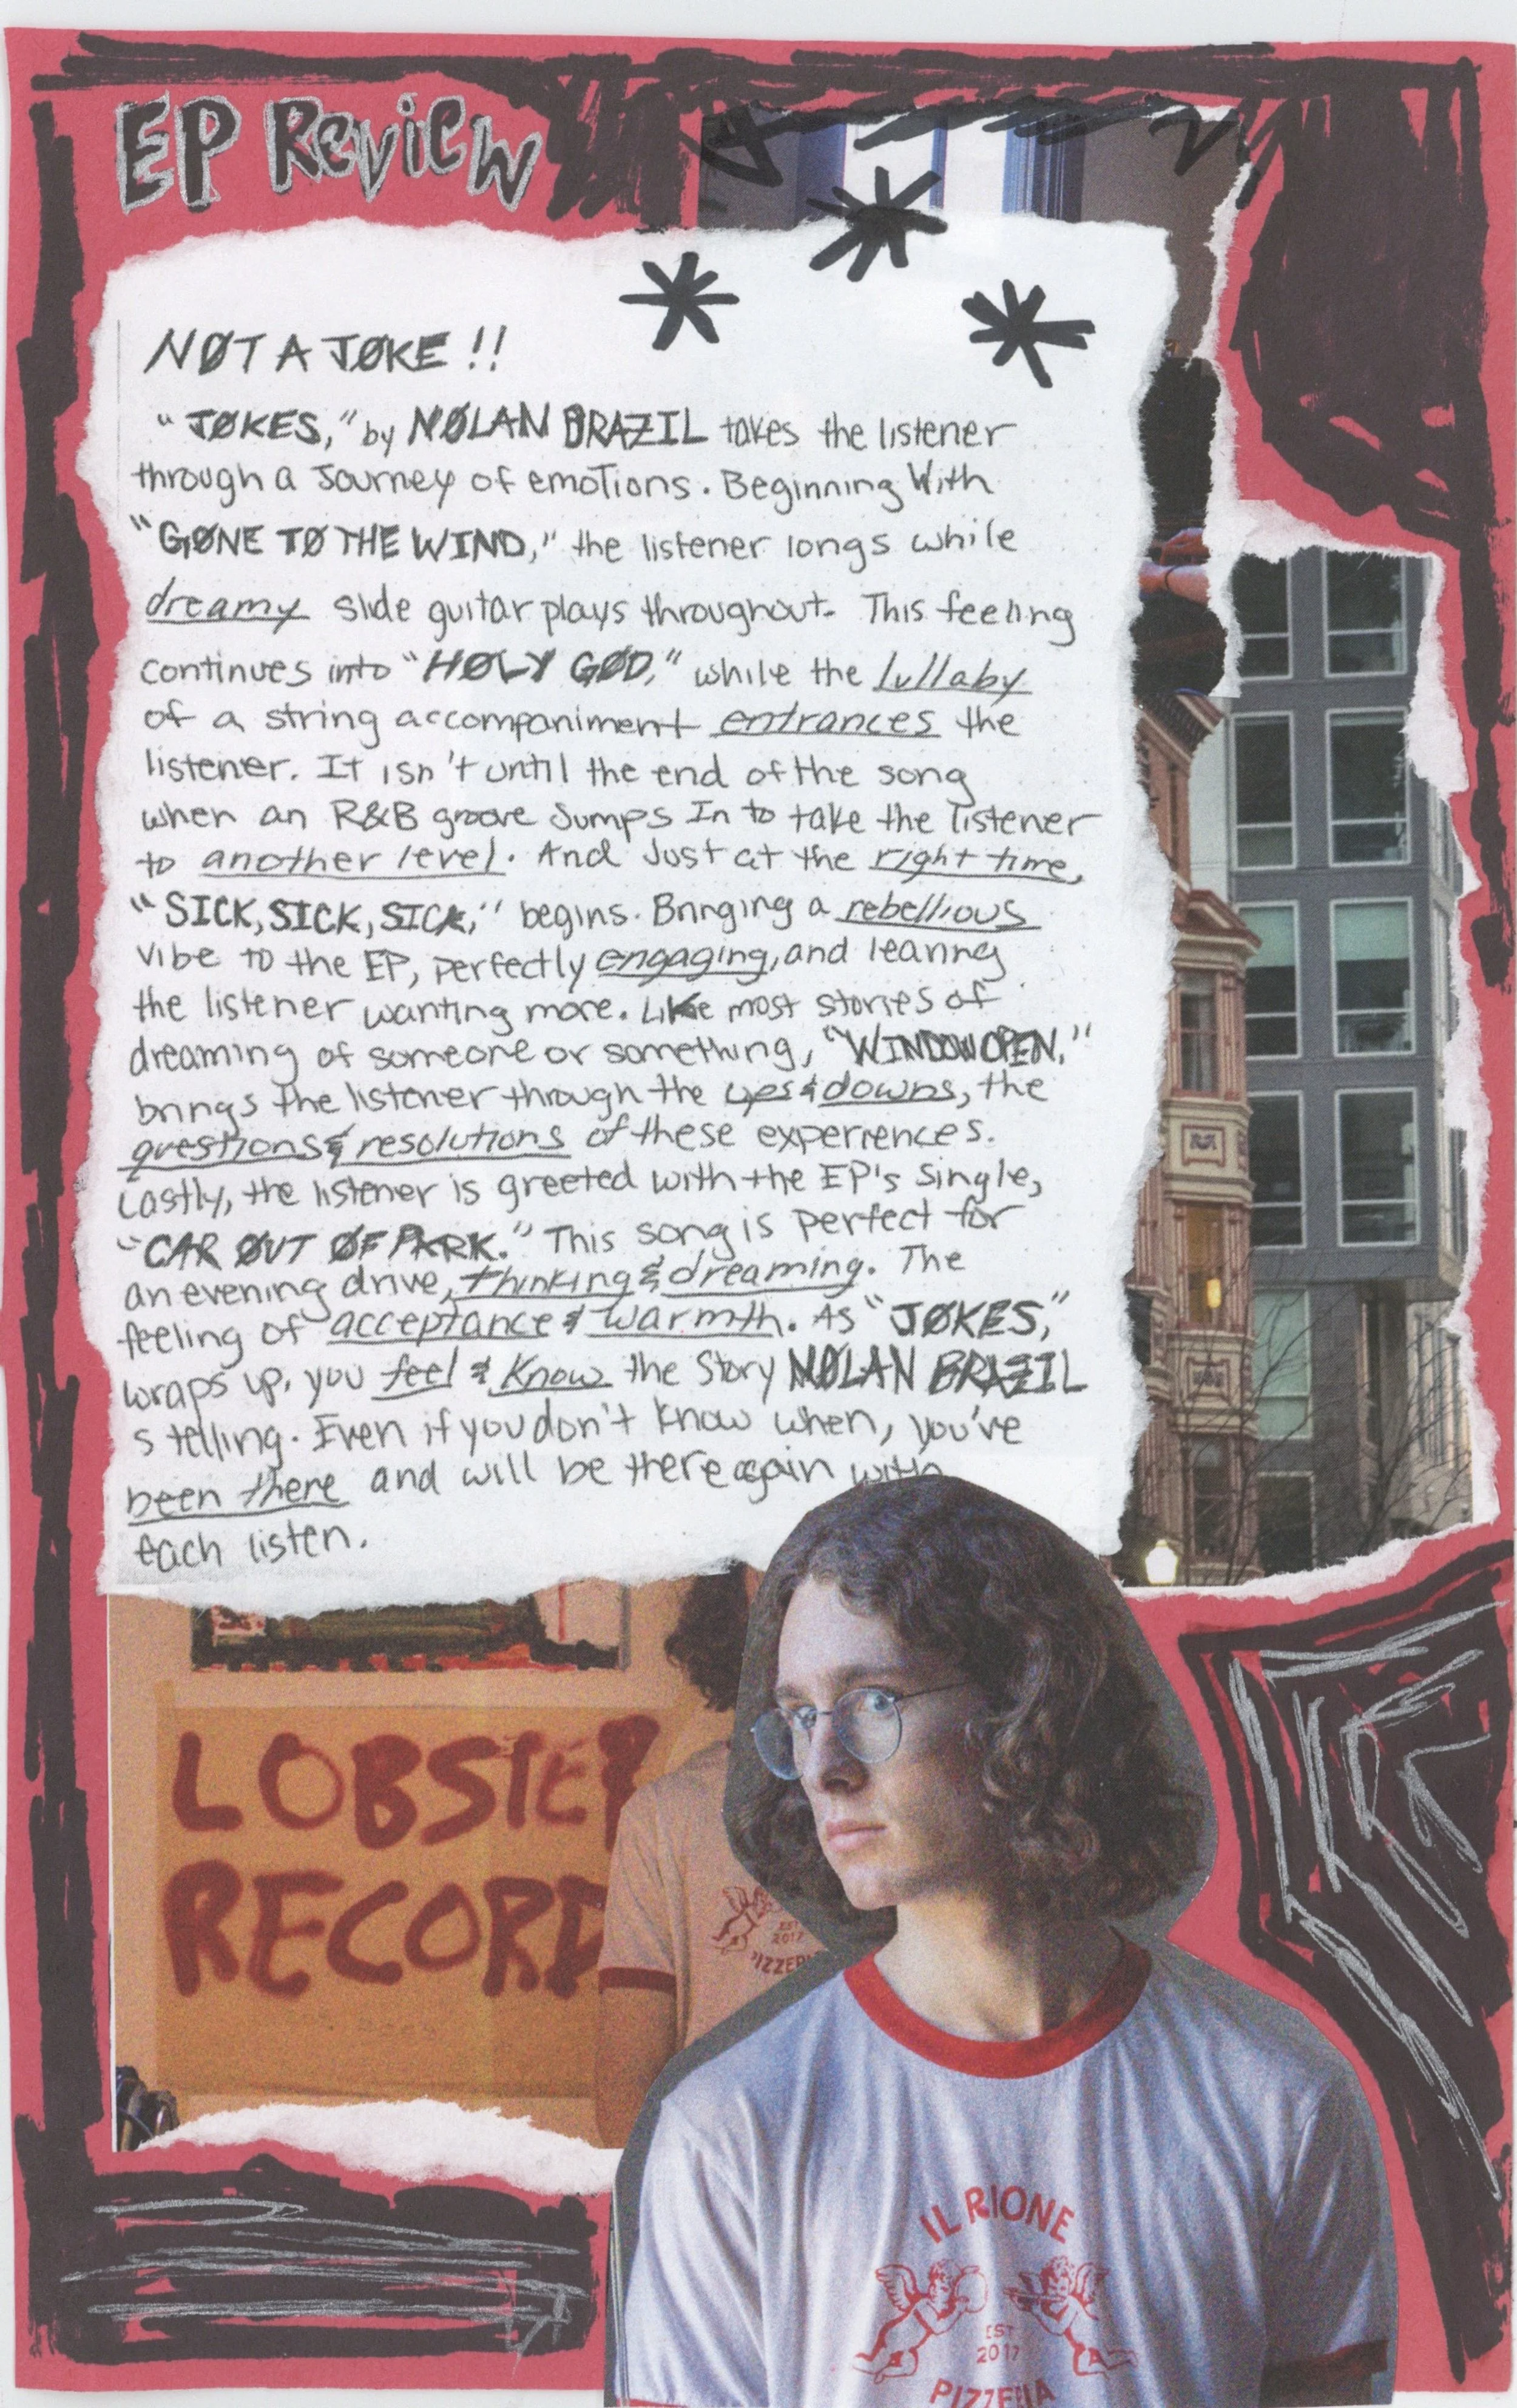 EP Review
NØT A JØKE!!
"JØKES," by NØLAN BRAZIL takes the listener
through a Journey of emotions. Beginning With
"GØNE TØ THE WIND," the listener longs while
dreamy slide guitar plays throughout. This feeling
continues into "HØLY GØD," while the lullaby
of a string accompaniment entrances the
listener. It isn't until the end of the song
when an R&B groove Jumps In to take the listener
to another level. And Just at the right time,
"SICK, SICK, SICK," begins. Bringing a rebellious
vibe to the EP, perfectly engaging, and leaving
the listener wanting more. Like most stories of
dreaming of someone or something, "WINDOW OPEN,"
brings the listener through the ups & downs, the
questions & resolutions of these experiences.
Lastly, the listener is greeted with the EP's Single,
"CAR ØUT ØF PARK." This song is perfect for
an evening drive, thinking & dreaming. The
feeling of acceptance & warmth. As "JØKES,"
wraps up, you feel & Know the Story NØLAN BRAZIL
s telling. Even if you don't know when, you've
been there and will be there again with
each listen.
LOBSTER
RECORD
EST
2017
PIZZERI
IL RIONE
EST
2017
PIZZERIA